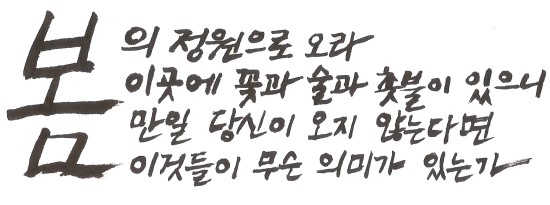 봄의 정원으로 오라
이곳에 꽃과 술과 촛불이 있으니
만일 당신이 오지 않는다면
이것들이 무슨 의미가 있는가